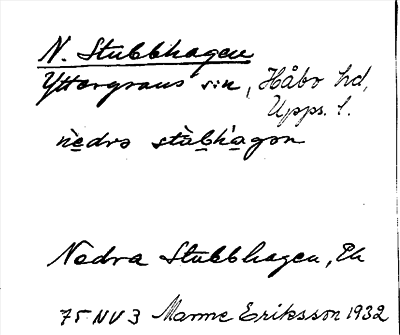 N. Stubbhagen
Yttergrans sn, Håbo hd,
Upps. l.
nèdrə stùbhàgən
Nedra Stubbhagen, Ek
75 NV 3 Manne Eriksson 1932